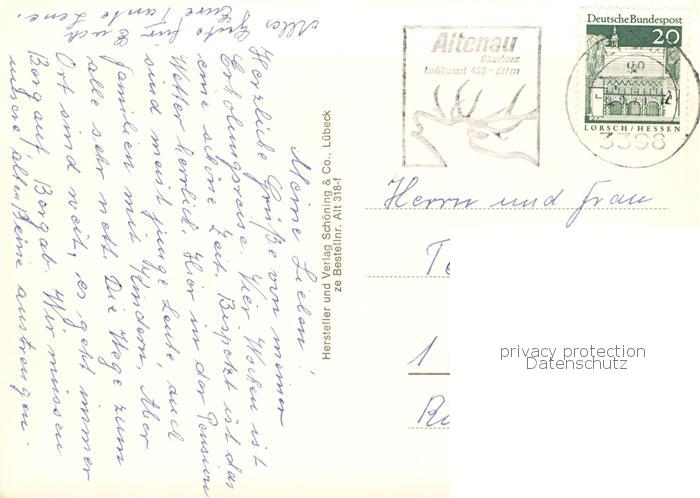 Meine Lieben!
Herzliche Grüße von meiner
Erholungsreise. Vier Wochen ist
eine schöne Zeit. Bis jetzt ist das
Wetter herrlich. Hier in der Pension
sind meist junge Leute, auch
Familien mit Kindern. Aber
alle sehr nett. Die Wege zum
Ort sind weit, es geht immer
Bergauf, Bergab. Wir müssen
unsere alten Beine anstrengen.
Alles
Gute für Euch
Eure Tante Lene.
Hersteller und Verlag Schöning & Co., Lübeck
ze Bestellnr. Alt 318-f
Altenau
Oberharz
Luftkurort 450 - 811 m
Deutsche Bundespost
20
LORSCH/HESSEN
3396
Herrn und Frau
1
privacy protection
Datenschutz